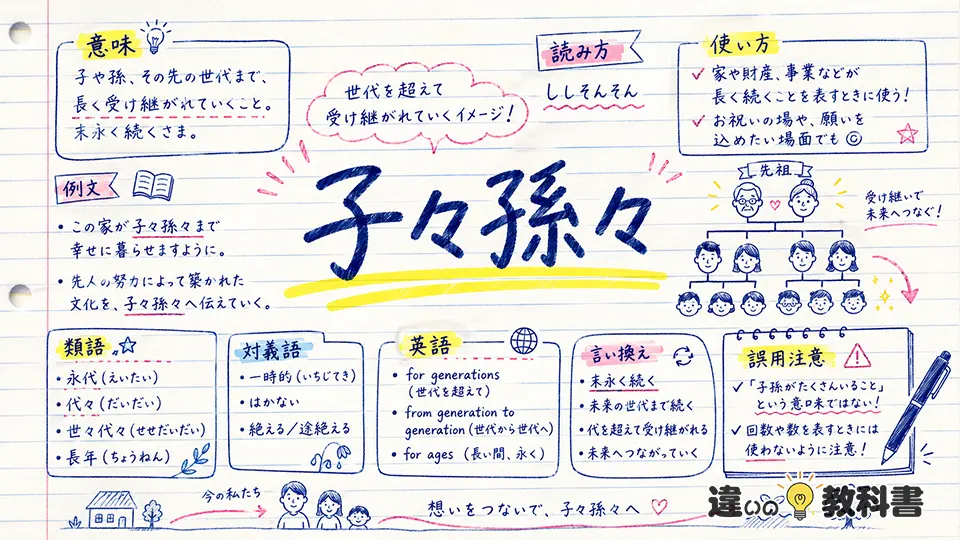 意味
子や孫、その先の世代まで、
長く受け継がれていくこと。
末永く続くさま。
世代を超えて
受け継がれていくイメージ!
読み方
ししそんそん
使い方
✓ 家や財産、事業などが
長く続くことを表すときに使う!
✓ お祝いの場や、願いを
込めたい場面でも☺
子々孫々
例文
・この家が子々孫々まで
幸せに暮らせますように。
・先人の努力によって築かれた
文化を、子々孫々へ伝えていく。
先祖
受け継いで
未来へつなぐ!
類語
・永代(えいたい)
・代々(だいだい)
・世々代々(せせだいだい)
・長年(ちょうねん)
対義語
・一時的(いちじてき)
・はかない
・絶える/途絶える
英語
・for generations
(世代を超えて)
・from generation to
generation(世代から世代へ)
・for ages(長い間、永く)
言い換え
・末永く続く
・未来の世代まで続く
・代を超えて受け継がれる
・未来へつながっていく
誤用注意
✓「子孫がたくさんいること」
という意味ではない!
✓ 回数や数を表すときには
使わないように注意!
今の私たち
想いをつないで、子々孫々へ ♡
違いの教科書